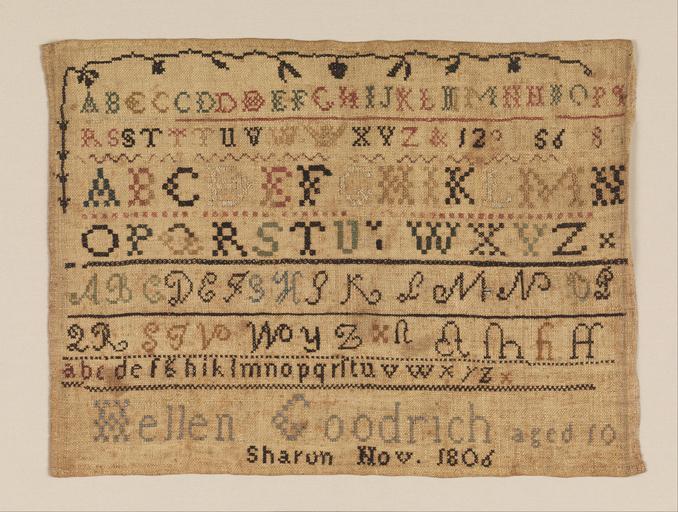 A B C C C D D D E F G H I J K L I M H H O P
R S S T T T U V W W X V Z & 12 56 8
A B C D E F G H I K L M N
O P Q R S T U W X Y Z x
A B C D E F G H I K L M N O P
Q R S T V W y Z x
a b c d e f g h i k l m n o p q r ſ t u v w x y z x
Hellen Goodrich aged 10
Sharon Nov. 1806